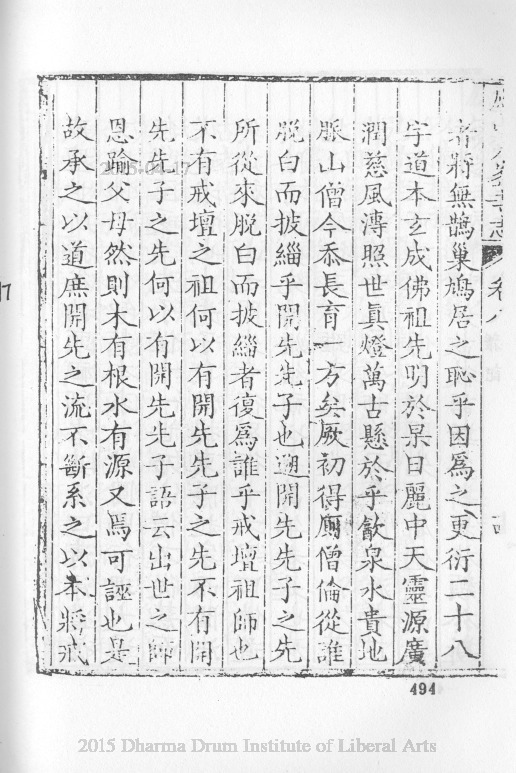 卷八
者將無鵲巢鳩居之恥乎因爲之更衍二十八
字道本玄成佛祖先明於杲日麗中天靈源廣
潤慈風漙照世眞燈萬古懸於乎歙泉水貴地
脈山僧今忝長育一方矣厥初得廁僧倫從誰
脫白而披緇乎開先先子也遡開先先子之先
所從來脫白而披緇者復爲誰乎戒壇祖師也
不有戒壇之祖何以有開先先子之先不有開
先先子之先何以有開先先子語云出世之師
恩踰父母然則木有根水有源又焉可誣也是
故承之以道庶開先之流不斷系之以本將戒
494
2015 Dharma Drum Institute of Liberal Arts